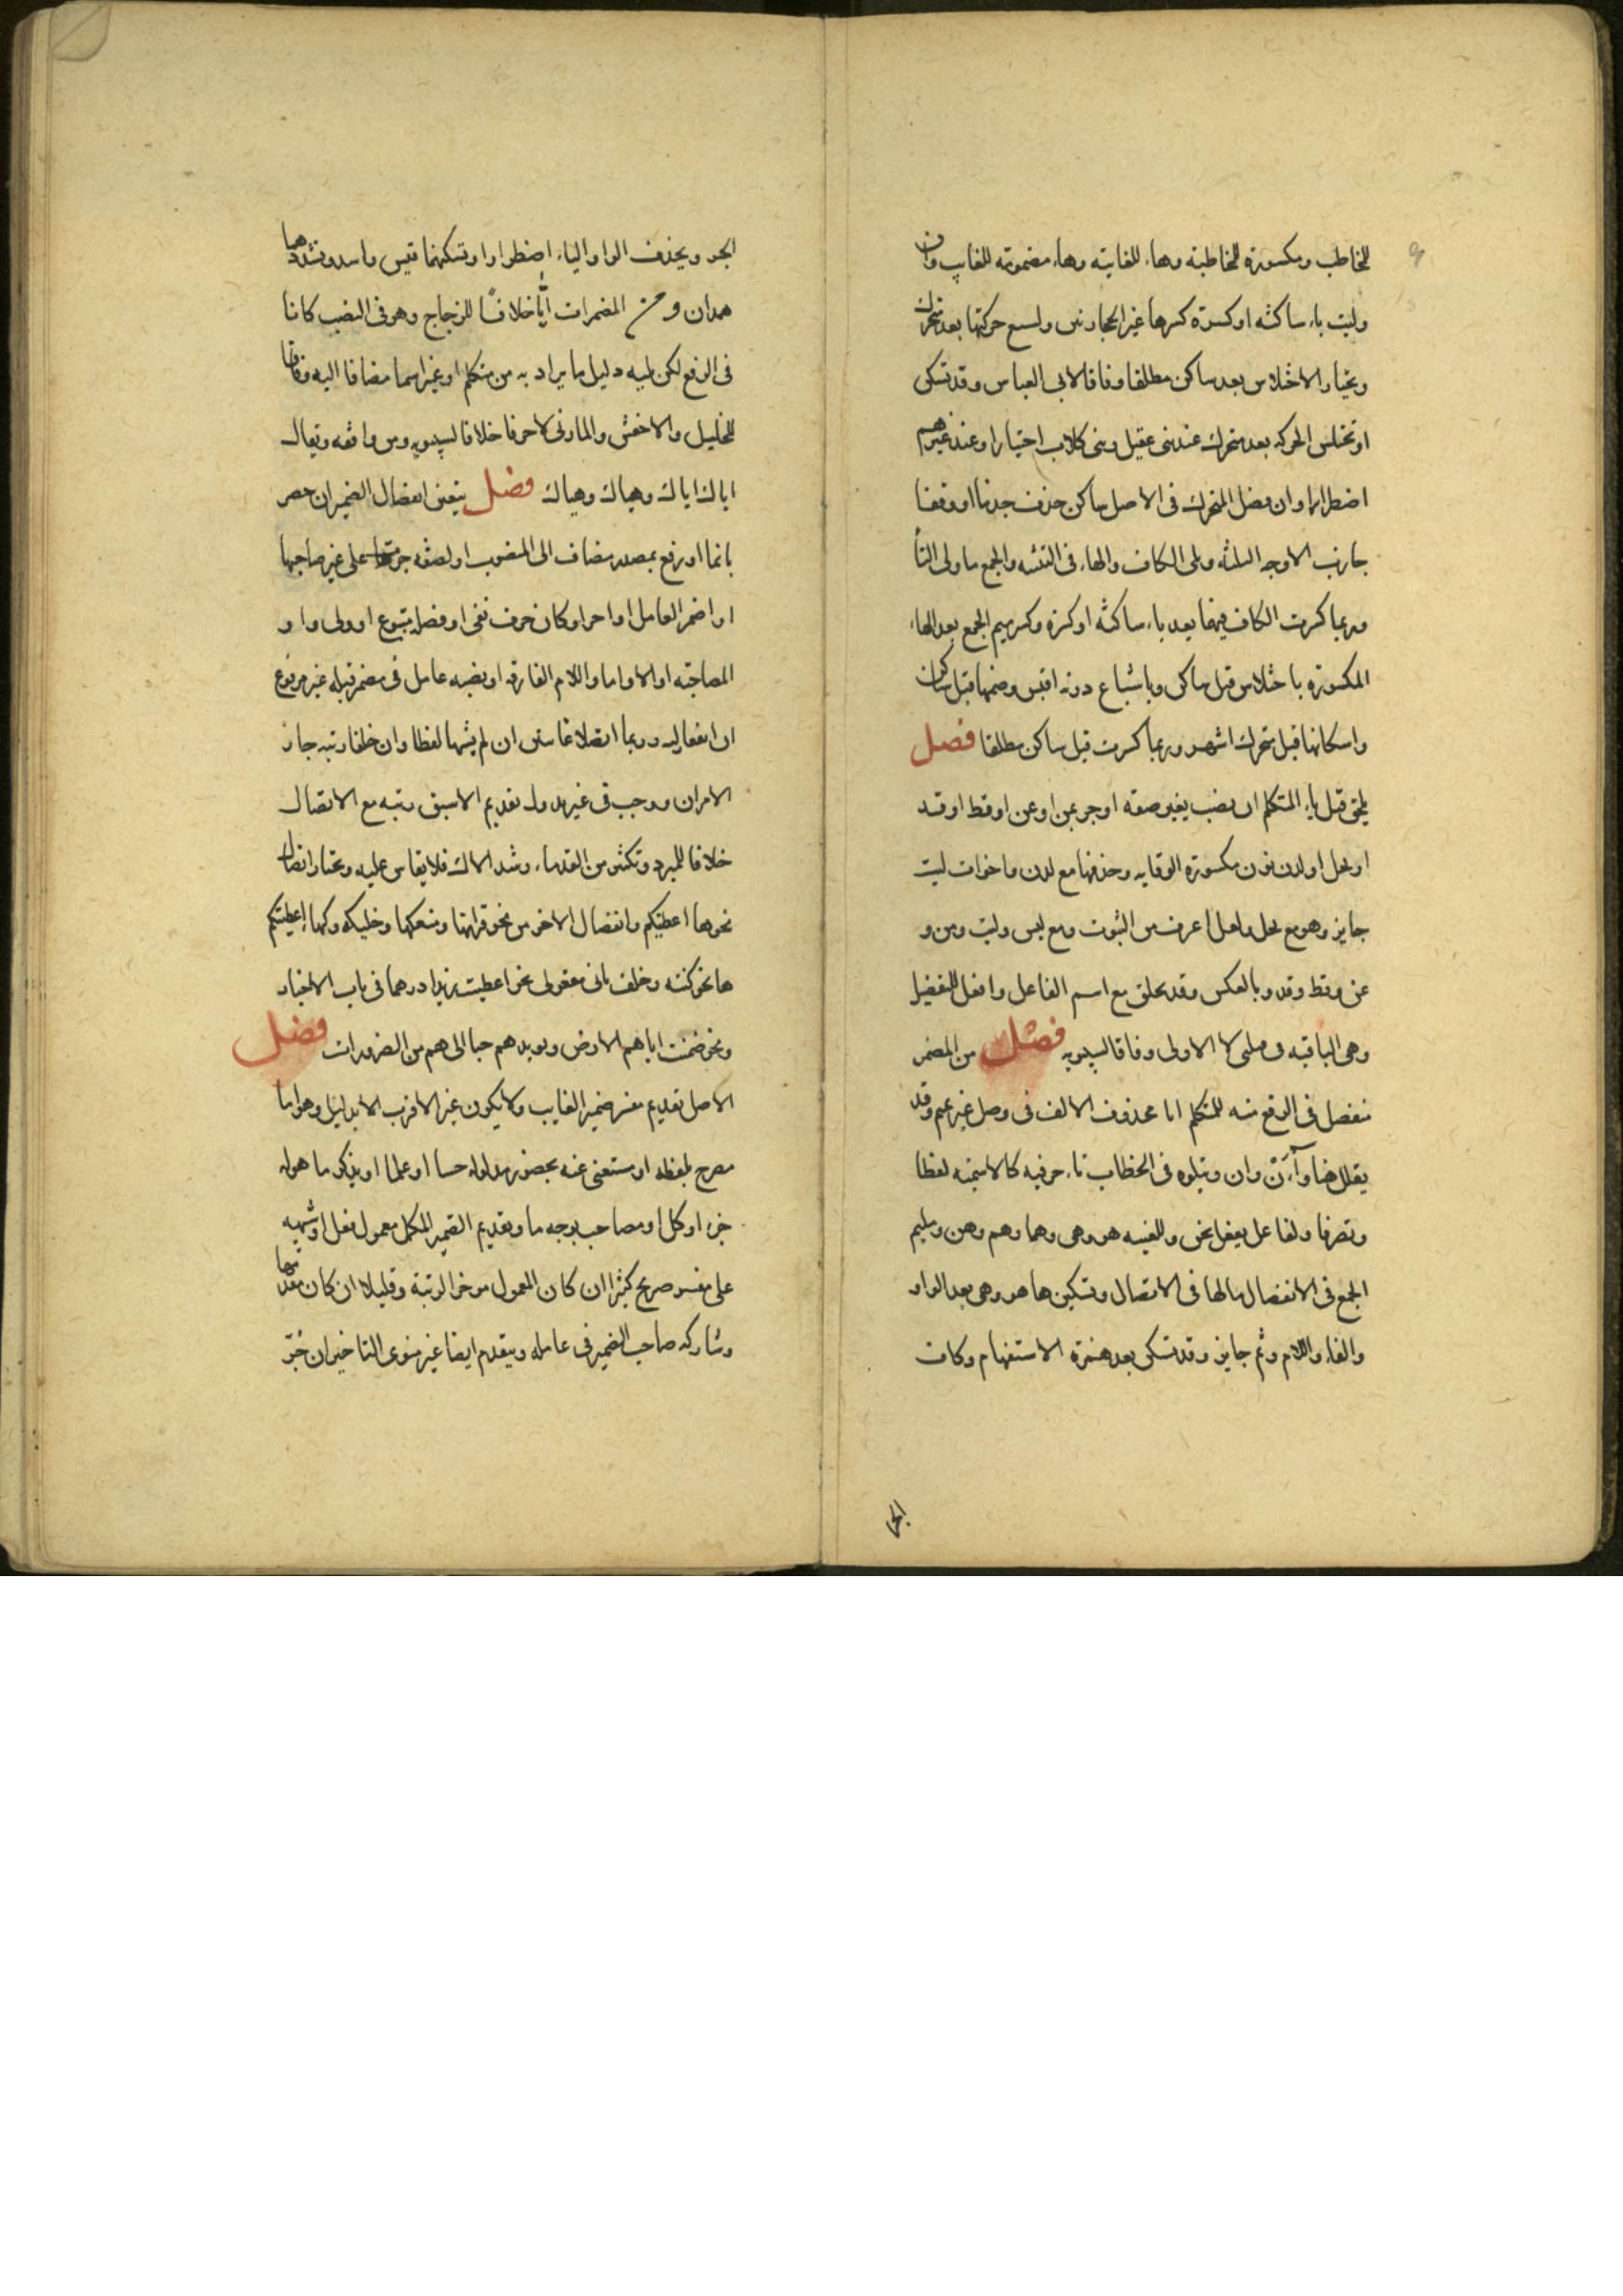 للمخاطب ومكسورة للمخاطبة وهاء للغايبة وهاء مضمومة للغايب وان
وليت ياء ساكنه او كسرة كسرها غير الحجازيين وتشبع حركتها بعد متحرك
ويختار الاختلاس بعد ساكن مطلقا وفاقا لابى العباس وقد تسكن
او تختلس الحركه بعد متحرك عند بنى عقيل وبنى كلاب اختيارا وعند غيرهم
اضطرارا وان فصل المتحرك فى الاصل ساكن حذف جزما او وقفا
جازت الاوجه الثلثه ويلى الكاف والهاء فى التثنيه والجمع ما ولى التاء
وربما كسرت الكاف فيهما بعد ياء ساكنه او كسرة وكسر ميم الجمع بعد الهاء
المكسورة باختلاس قبل ساكن وباشباع دونه اقيس وضمها قبل ساكن
واسكانها قبل متحرك اشهر وربما كسرت قبل ساكن مطلقا فصل
يلحق قبل ياء المتكلم ان نصب بغير صفه او جر بمن او عن او قط او قد
او بجل او لدن نون مكسورة للوقايه وحذفها مع لدن واخوات ليت
جايز وهو مع بجل ولعل اعرف من الثبوت ومع ليس وليت ومن و
عن وقط وقد وبالعكس وقد تلحق مع اسم الفاعل وافعل التفضيل
وهى الباقيه فى فلينى لا الاولى وفاقا لسيبويه فصل من المضمر
منفصل فى الرفع منه للمتكلم انا محذوف الالف فى وصل غير تميم وقد
يقال هنا وآن وان ويتلوه فى الخطاب تاء حرفيه كالاسميه لفظا
وتصرفا ولفاعل نفعل نحن وللغيبه هو وهى وهما وهم وهن ولميم
الجمع فى الانفصال مالها فى الاتصال وتسكين ها هو وهى بعد الواو
والفاء واللام وثم جايز وقد تسكن بعد همزة الاستفهام وكاف
الجر
الجر ويحذف الواو والياء اضطرارا وتسكنهما قيس واسد وتشددهما
همدان ومن المضمرات ايا خلافا للزجاج وهو فى النصب كانا
فى الرفع لكن يليه دليل ما يراد به من متكلم او غيره اسما مضافا اليه وفاقا
للخليل والاخفش والمازنى لا حرفا خلافا لسيبويه ومن وافقه ويقال
اياك اياك وهياك وهياك فصل يتعين انفصال الضمير ان حصر
بانما او رفع بمصدر مضاف الى المنصوب او بصفه جرت على غير صاحبها
او اضمر العامل او اخر او كان حرف نفى او فصله متبوع او ولى واو
المصاحبه او الا او اما او اللام الفارقه او نصبه عامل فى مضمر قبله غير مرفوع
ان اتفقا رتبه وربما اتصلا غائبين ان لم يشتبها لفظا وان اختلفا رتبه جاز
الامران ووجب فى غير ندور تقديم الاسبق رتبه مع الاتصال
خلافا للمبرد ولكثير من القدماء وشذ الاك فلا يقاس عليه ويختار اتصال
نحو ها اعطيتكم وانفصال الاخر من نحو فراقيها ومنعكها وخلتكه وكها اعطيتكم
ها نحو كنته وخلف ثانى مفعولى نحو اعطيت زيدا درهما فى باب الاخبار
ونحو ضمنت اياهم الارض ويزيدهم حبا الى هم من الضرورات فصل
الاصل تقديم مفسر ضمير الغايب ولا يكون غير الاقرب الا بدليل وهو اما
مصرح بلفظه او مستغنى عنه بحضور مدلوله حسا او علما او بذكر ما هو له
جزء او كل او مصاحب بوجه ما ويقدم الضمير المكمل معمول فعل او شبهه
على مفسر صريح كثيرا ان كان المعمول موخر الرتبة وقليلا ان كان مقدمها
وشاركه صاحب الضمير فى عامله ويتقدم ايضا غير منوى التاخير ان جر